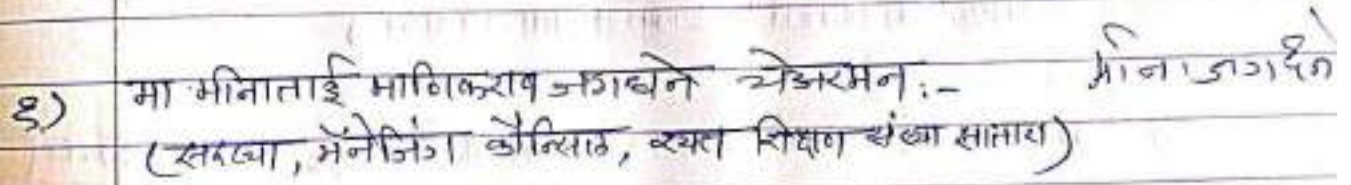 १) मा. मीनाताई माणिकराव जगधने चेअरमन :- मीना जगधने
(सदस्या, मॅनेजिंग कौन्सिल, रयत शिक्षण संस्था सातारा)